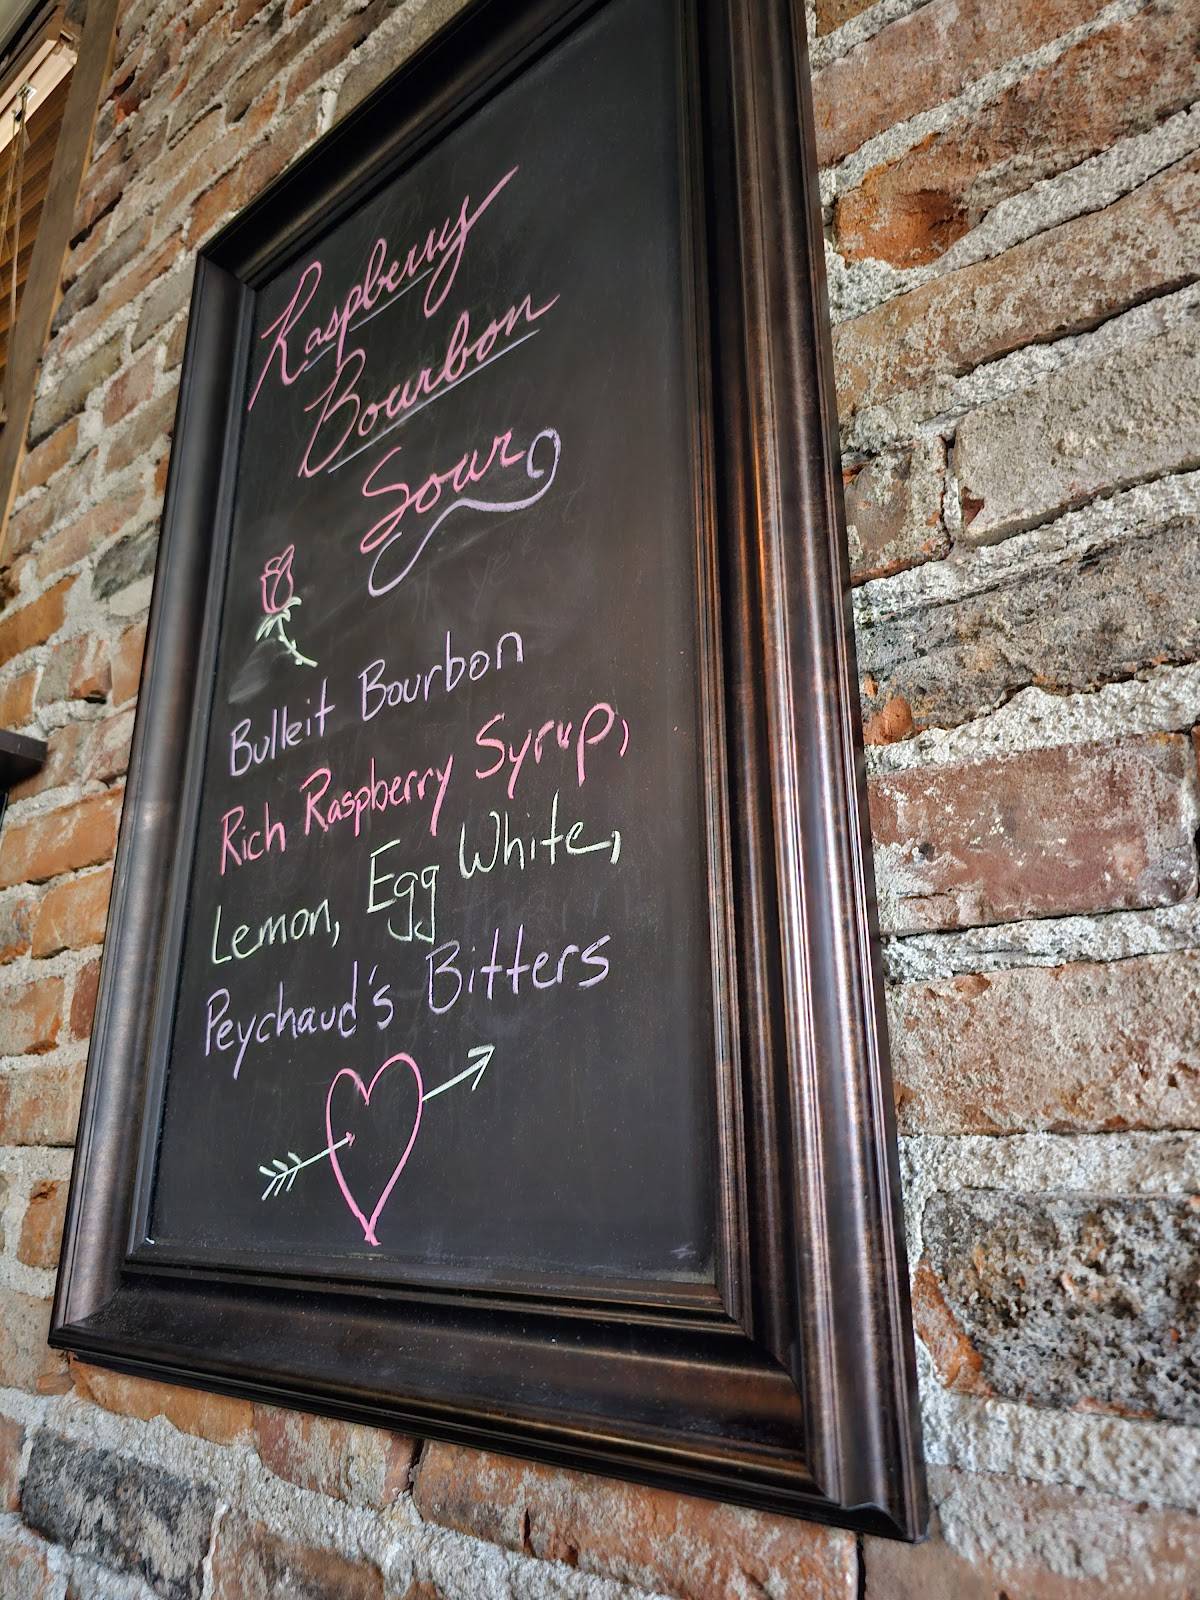 Raspberry
Bourbon
Sour
Bulleit Bourbon
Rich Raspberry Syrup,
Lemon, Egg White,
Peychaud's Bitters